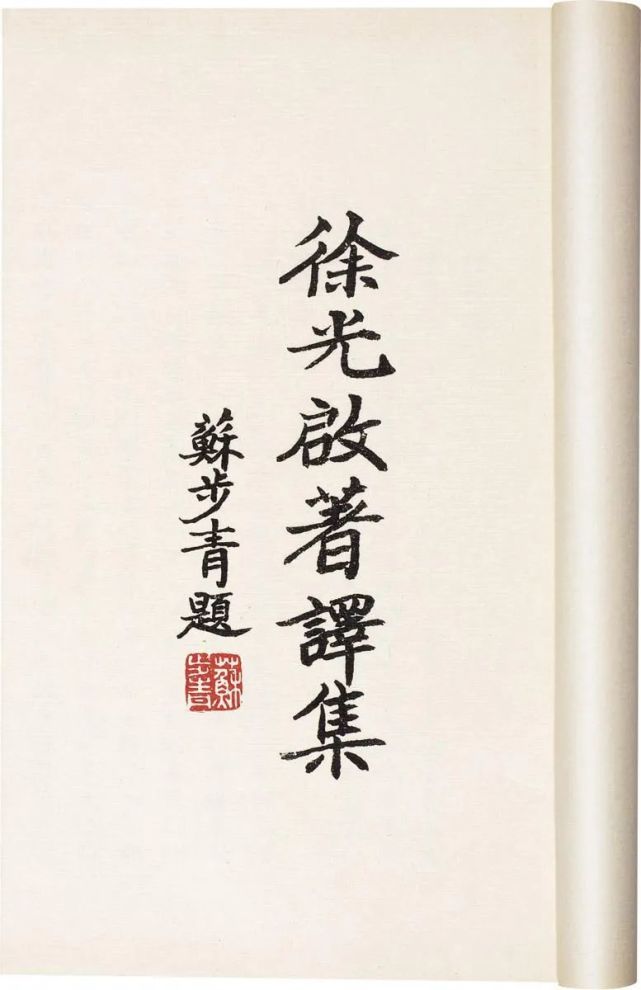 徐光啟著譯集
蘇步青題
蘇步青